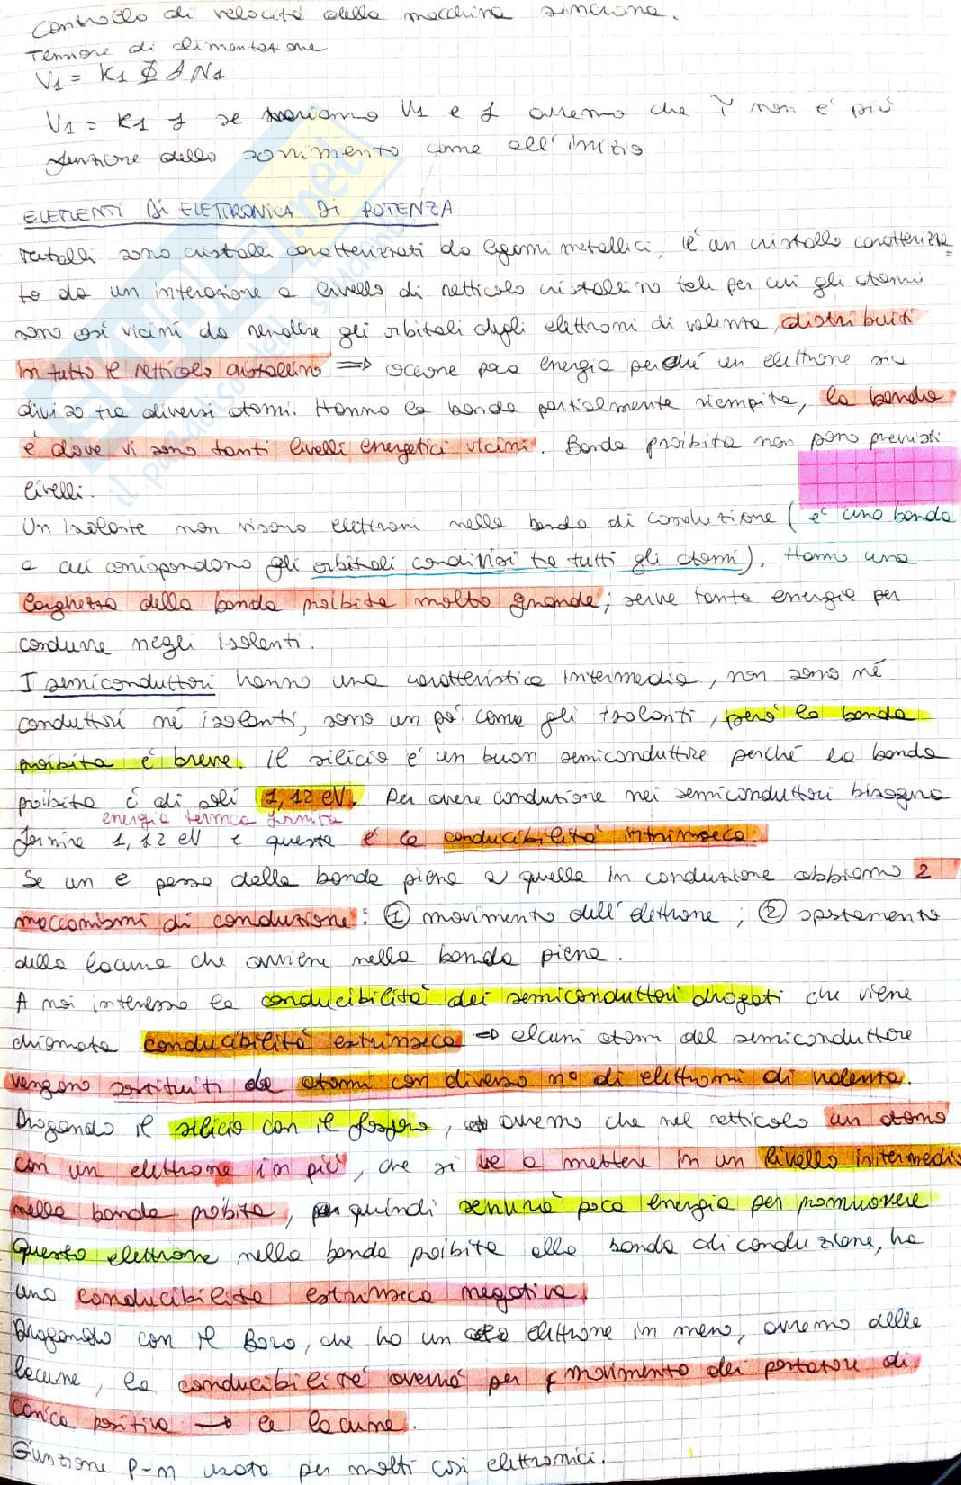 Controllo di velocità della macchina sincrona.
Tensione di alimentazione
V1 = K1 Φ f N1
V1 = K1 f se variamo V1 e f avremo che non è più
funzione dello scorrimento come all'inizio
ELEMENTI DI ELETTRONICA DI POTENZA
Metalli sono cristalli caratterizzati da legami metallici, è un cristallo caratterizza
to da un interazione a livello di retticolo cristallino tale per cui gli atomi
sono così vicini da rendere gli orbitali degli elettroni di valenza distribuiti
in tutto il retticolo cristallino => occorre poca energia perché un elettrone sia
diviso tra diversi atomi. Hanno la banda parzialmente riempita, la banda
è dove vi sono tanti livelli energetici vicini. Banda proibita non sono previsti
livelli.
Un isolante non vi sono elettroni nella banda di conduzione (è una banda
a cui corrispondono gli orbitali condivisi tra tutti gli atomi). Hanno una
larghezza della banda proibita molto grande; serve tanta energia per
condurre negli isolanti.
I semiconduttori hanno una caratteristica intermedia, non sono né
conduttori né isolanti, sono un po' come gli isolanti, però la banda
proibita è breve. Il silicio è un buon semiconduttore perché la banda
proibita è di soli 1,12 eV. Per avere conduzione nei semiconduttori bisogna
energia termica fornita
fornire 1,12 eV e questa è la conducibilità intrinseca.
Se un e passa dalla banda piena a quella in conduzione abbiamo 2
meccanismi di conduzione: ① movimento dell'elettrone; ② spostamento
della lacuna che avviene nella banda piena.
A noi interessa la conducibilità dei semiconduttori drogati che viene
chiamata conducibilità estrinseca => alcuni atomi del semiconduttore
vengono sostituiti da atomi con diverso n° di elettroni di valenza.
Drogando il silicio con il fosforo, avremo che nel retticolo un atomo
con un elettrone in più, che si va a mettere in un livello intermedio
nella banda proibita, quindi servirà poca energia per promuovere
questo elettrone nella banda proibita alla banda di conduzione, ha
una conducibilità estrinseca negativa.
Drogando con il Boro, che ha un elettrone in meno, avremo delle
lacune, la conducibilità avverrà per movimento dei portatori di
carica positiva → le lacune.
Giunzione P-n usata per molti cosi elettronici.